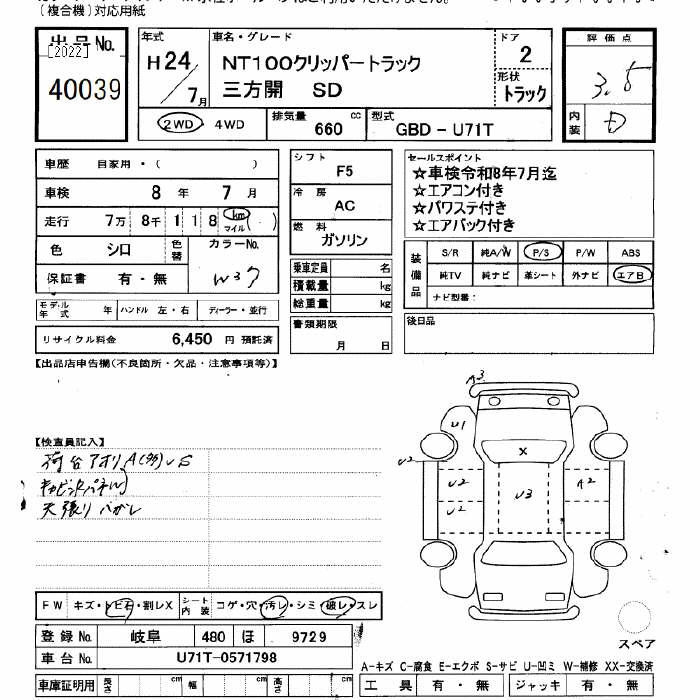 (複合機)対応用紙
出品No.
[2022]
40039
年式
H24/7月
車名・グレード
NT100クリッパートラック
三方開 SD
ドア
2
形状
トラック
評価点
3.5
内装
D
2WD・4WD
排気量 660 cc
型式 GBD-U71T
車歴 自家用・( )
車検 8年 7月
走行 7万 8千 1 1 8 km マイル ( )
色 シロ 色替 カラーNo.
保証書 有・無 W37
モデル年式 年 ハンドル 左・右 ディーラー・並行
リサイクル料金 6,450 円 預託済
シフト
F5
冷房
AC
燃料
ガソリン
乗車定員 名
積載量 kg
総重量 kg
書類期限
月 日
セールスポイント
☆車検令和8年7月迄
☆エアコン付き
☆パワステ付き
☆エアバック付き
装備品
S/R 純A/W P/S P/W ABS
純TV 純ナビ 革シート 外ナビ エアB
ナビ型番:
後日品
【出品店申告欄(不良箇所・欠品・注意事項等)】
【検査員記入】
荷台アオリA(多)US
キャビンパネルU
天張りハガレ
A3
U1
X
U2
U2
U3
A2
U2
FW キズ・トビ石・割レX シート内装 コゲ・穴・汚レ・シミ・破レ・スレ
登録No. 岐阜 480 ほ 9729
車台No. U71T-0571798
車庫証明用 長さ cm 幅 cm 高さ cm
スペア
A-キズ C-腐食 E-エクボ S-サビ U-凹ミ W-補修 XX-交換済
工具 有・無 ジャッキ 有・無